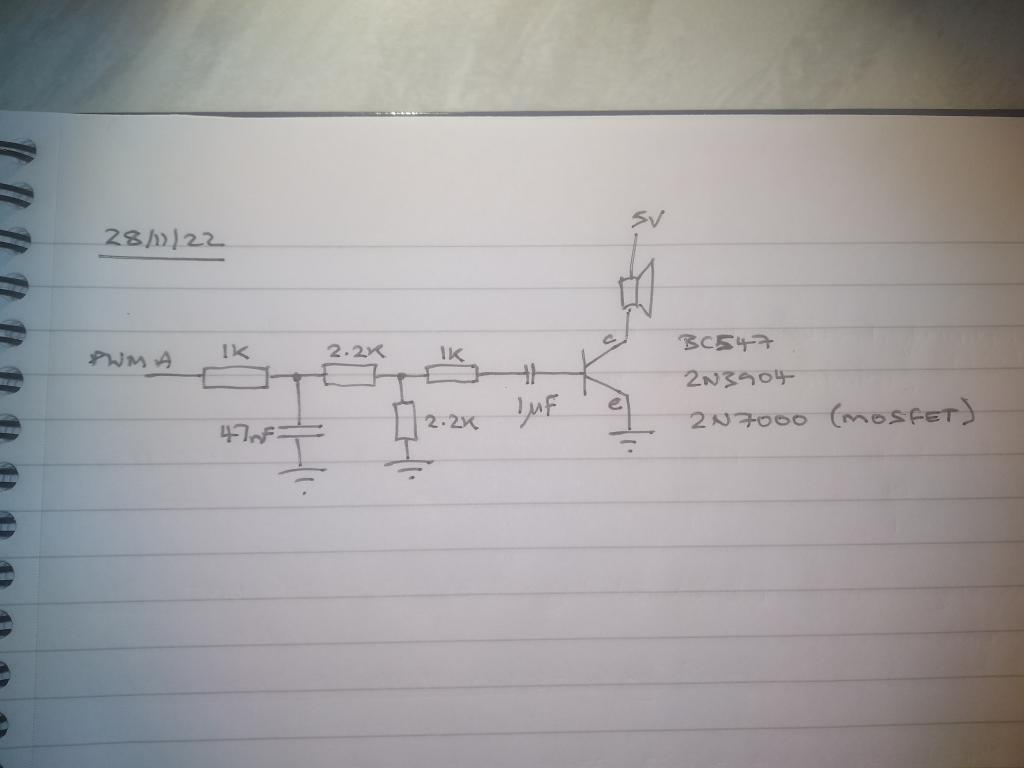 28/11/22
5V
PWM A
1K
2.2K
1K
c
BC547
2N3904
47nF
2.2K
1µF
e
2N7000 (MOSFET)